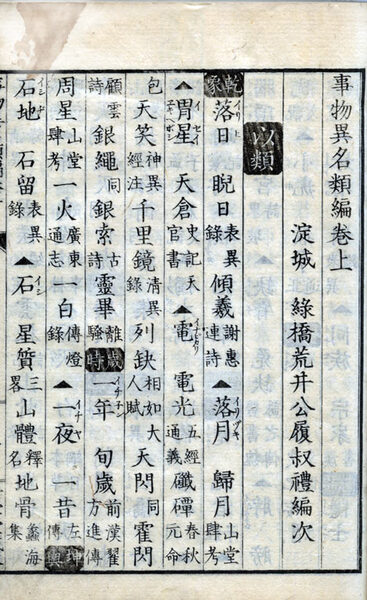 事物異名類編卷上
淀城 緑橋荒井公履叔禮編次
以類
乾象 落日イリヒ 晲日表異錄 傾羲謝惠連詩 ▲落月 歸月山堂肆考
▲胃星イセイ 天倉史記天官書 ▲電 電光五經通義 磹春秋元命
包 天笑神異經注 千里鏡清異錄 列缺相如大人賦 天閃同 霍閃
顧雲詩 銀繩同 銀索古詩 靈畢離騷 歲時 一年 旬歲前漢翟方進傳
周星山堂肆考 一火廣東通志 一白傳燈錄 ▲一夜イチヤ 一昔左傳
石地イシヂ 石留表異錄 ▲石イシ 星質三畧 山體釋名 地骨蠡海集